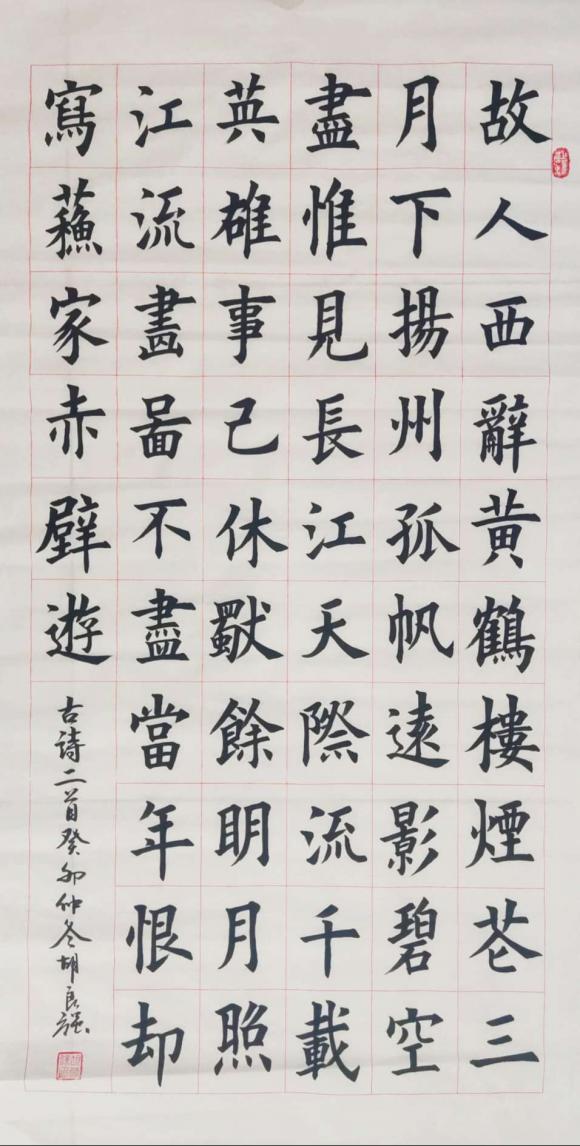 故人西辭黃鶴樓煙芲三
月下揚州孤帆遠影碧空
盡惟見長江天際流千載
英雄事己休獨餘明月照
江流畫啚不盡當年恨却
寫蘓家赤壁遊
古詩二首癸卯仲冬胡良强